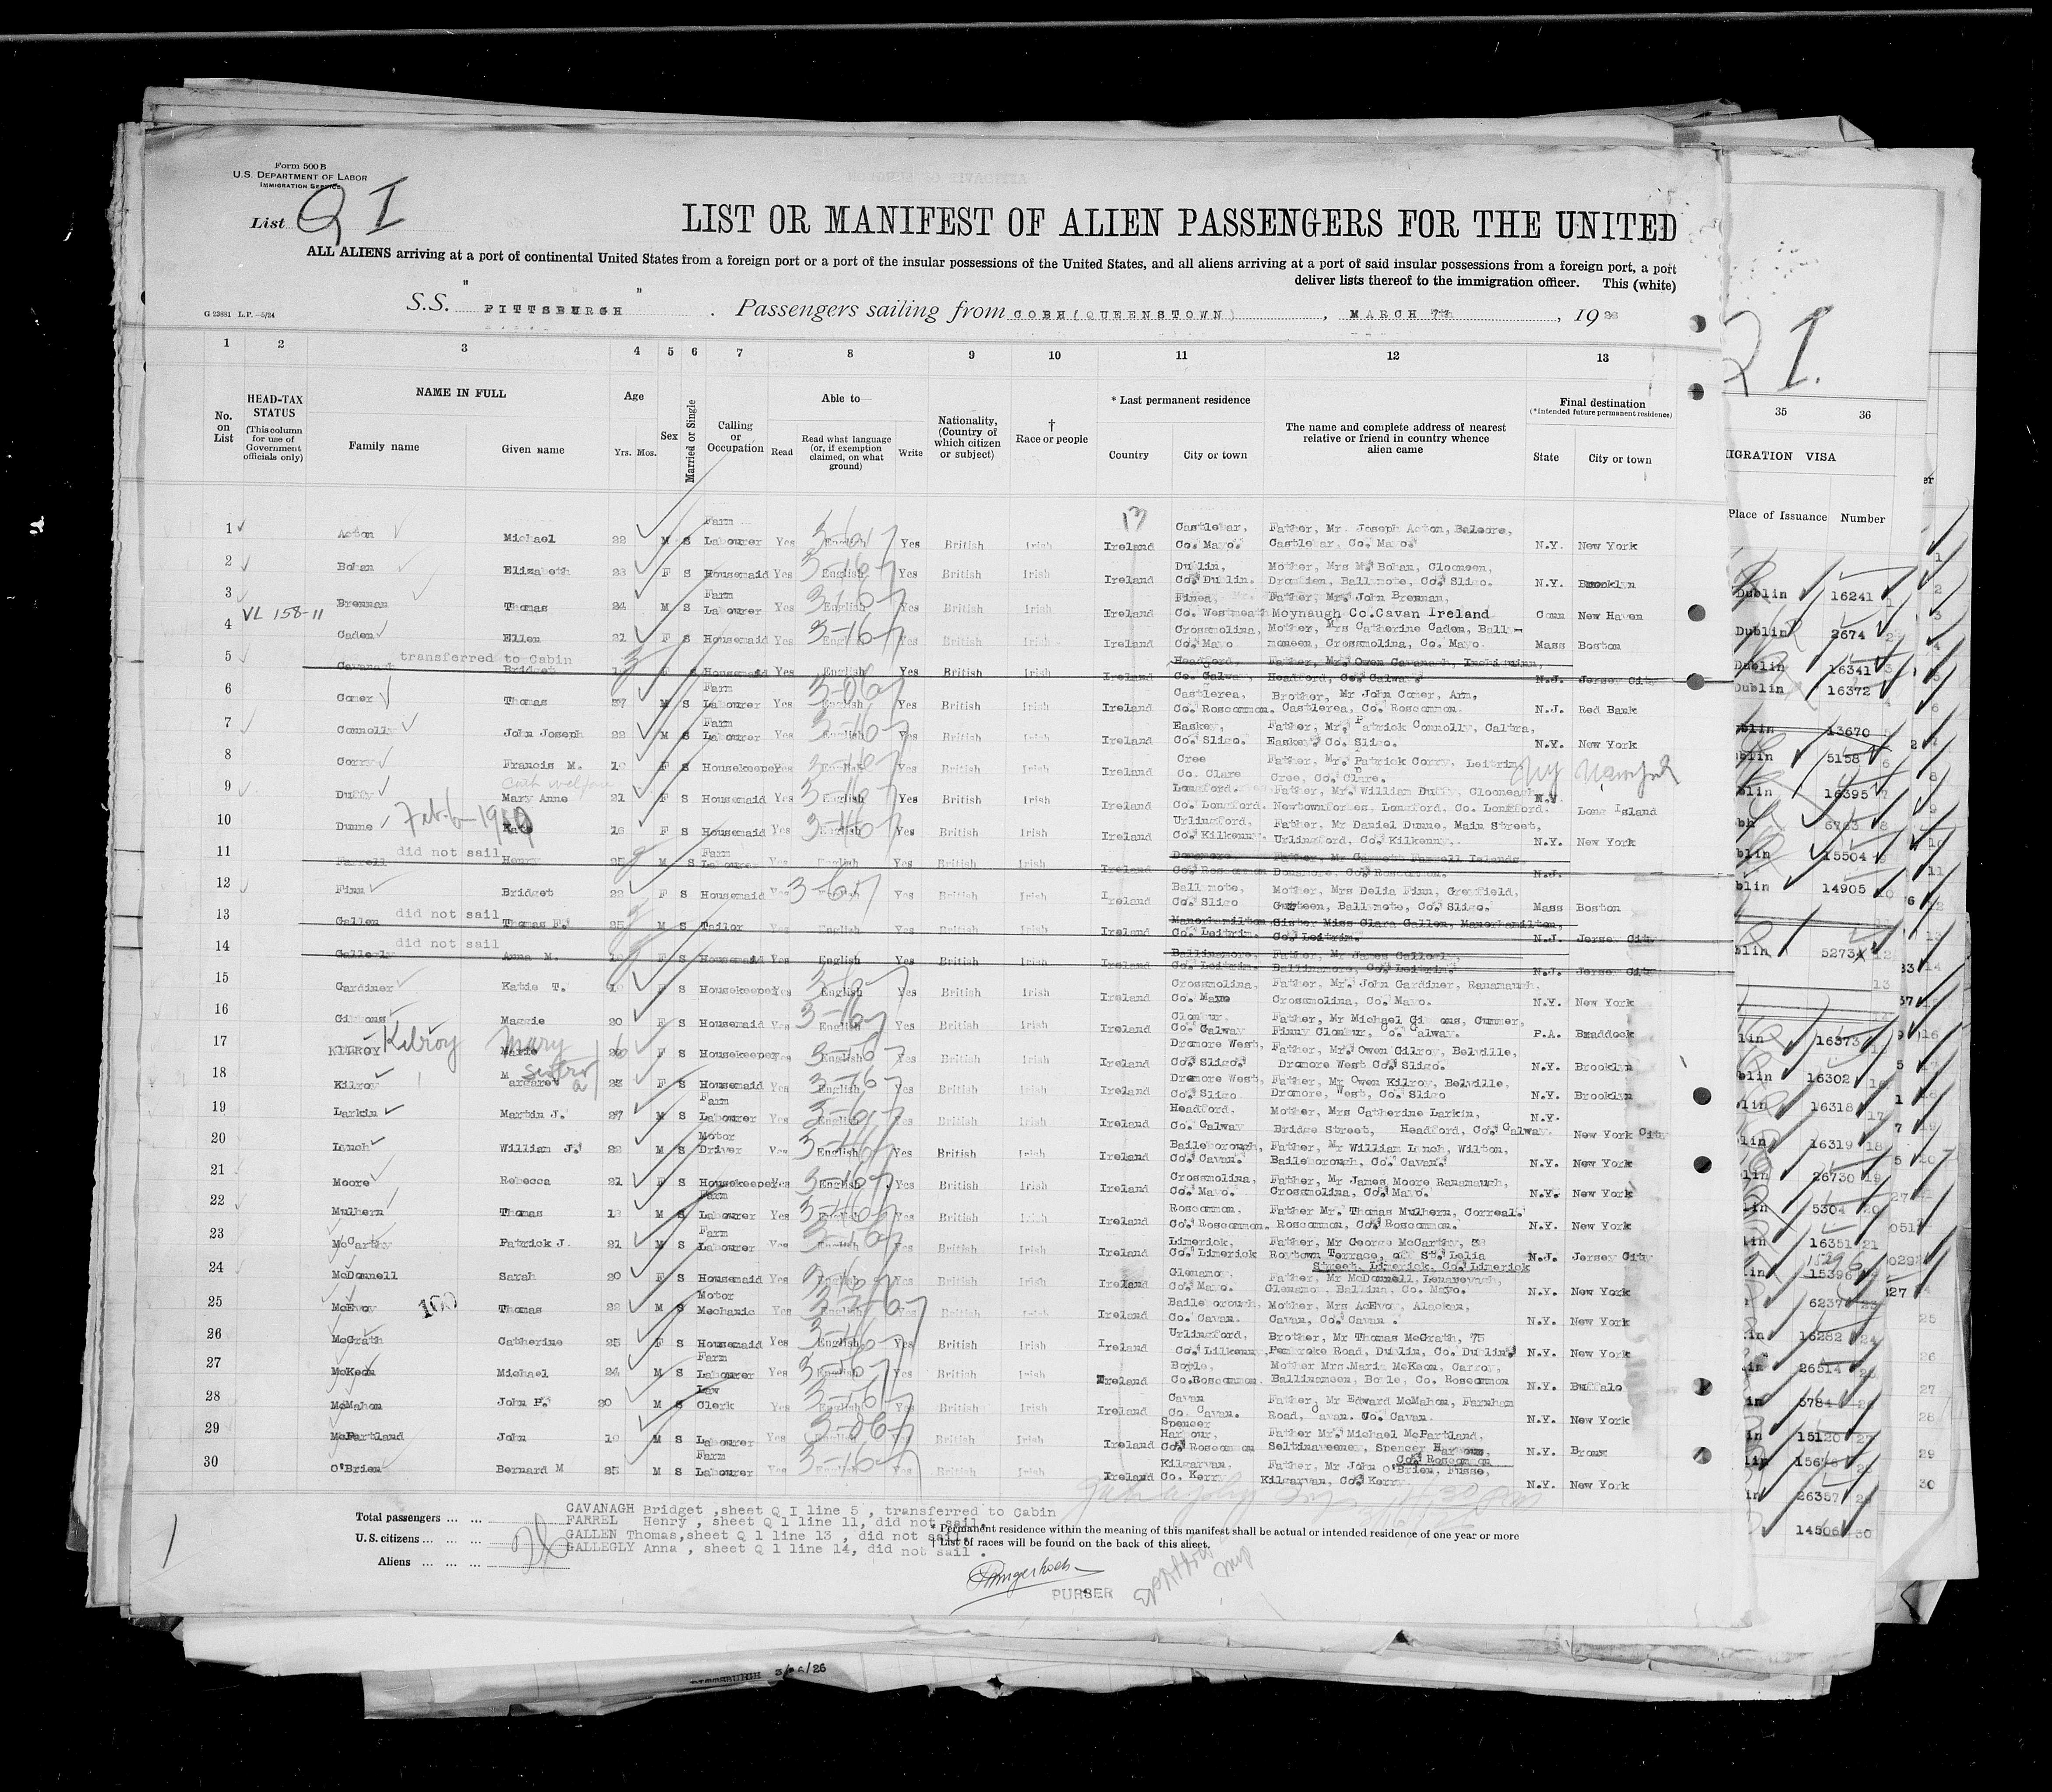 Form 500 B
U.S. DEPARTMENT OF LABOR
IMMIGRATION SERVICE
List Q I
LIST OR MANIFEST OF ALIEN PASSENGERS FOR THE UNITED
ALL ALIENS arriving at a port of continental United States from a foreign port or a port of the insular possessions of the United States, and all aliens arriving at a port of said insular possessions from a foreign port, a port
deliver lists thereof to the immigration officer. This (white)
G 23881 L.P.—5/24
S.S. "PITTSBURGH" . Passengers sailing from COBH(QUEENSTOWN) , MARCH 7th , 19
1 2 3 4 5 6 7 8 9 10 11 12 13
No. on List
HEAD-TAX STATUS (This column for use of Government officials only)
NAME IN FULL Family name Given name
Age Yrs. Mos.
Sex
Married or Single
Calling or Occupation
Able to— Read Read what language (or, if exemption claimed, on what ground) Write
Nationality, (Country of which citizen or subject)
† Race or people
* Last permanent residence Country City or town
The name and complete address of nearest relative or friend in country whence alien came
Final destination (*Intended future permanent residence) State City or town
1 Acton Michael 22 M S Farm Labourer Yes English Yes British Irish Ireland Castlebar, Co. Mayo. Father, Mr. Joseph Acton, Castlebar, Co. Mayo. N.Y. New York
2 Bohan Elizabeth 23 F S Housemaid Yes English Yes British Irish Ireland Dublin, Co. Dublin. Mother, Mrs M. Bohan, Clooneen, Ballymote, Co. Sligo. N.Y. Brooklyn
3 VL 158-11 Brennan Thomas 24 M S Farm Labourer Yes English Yes British Irish Ireland Finea, Co. Westmeath Father, Mr. John Brennan, Moynaugh Co.Cavan Ireland Conn New Haven
4 Caden Ellen 21 F S Housemaid Yes English Yes British Irish Ireland Crossmolina, Co. Mayo Mother, Mrs Catherine Caden, Ball- moneen, Crossmolina, Co. Mayo. Mass Boston
5 transferred to Cabin Cavanagh Bridget F S Housemaid Yes English Yes British Irish Ireland Headford, Co. Galway Father, Mr. Owen Cavanagh, Headford, Co. Galway. N.J. Jersey City
6 Comer Thomas 27 M S Farm Labourer Yes English Yes British Irish Ireland Castlerea, Co. Roscommon. Brother, Mr John Comer, Arm, Castlerea, Co. Roscommon. N.J. Red Bank
7 Connolly John Joseph 22 M S Farm Labourer Yes English Yes British Irish Ireland Easkey, Co. Sligo. Father, Mr. Patrick Connolly, Caltra, Easkey, Co. Sligo. N.Y. New York
8 Corry Francis M. F S Housekeeper Yes English Yes British Irish Ireland Cree Co. Clare Father, Mr. Patrick Corry, Leitrim, Cree, Co. Clare.
9 Duffy Mary Anne 21 F S Housemaid Yes English Yes British Irish Ireland Longford. Co. Longford. Father, Mr. William Duffy, Clooneagh, Newtownforbes. Longford, Co. Longford. N.Y. Long Island
10 Dunne Kate F S Housemaid Yes English Yes British Irish Ireland Urlingford, Co. Kilkenny. Father, Mr Daniel Dunne, Main Street, Urlingford, Co. Kilkenny. N.Y. New York
11 did not sail Farrell Henry 25 M S Farm Labourer Yes English Yes British Irish Ireland Co. Roscommon Co. Roscommon. N.J.
12 Finn Bridget 22 F S Housemaid Yes Yes British Irish Ireland Ballymote, Co. Sligo Mother, Mrs Delia Finn, Greyfield, Gurteen, Ballymote, Co. Sligo. Mass Boston
13 did not sail Gallen Thomas F. 25 M S Tailor Yes English Yes British Irish Ireland Manorhamilton Co. Leitrim. Sister Miss Clara Gallen, Manorhamilton, Co. Leitrim. N.J. Jersey City
14 did not sail Gallegly Anna M. F S Housemaid Yes English Yes British Irish Ireland Ballinamore, Co. Leitrim. Father, Mr James Gallegly, Ballinamore, Co. Leitrim. N.J. Jersey City
15 Gardiner Katie T. F S Housekeeper Yes English Yes British Irish Ireland Crossmolina, Co. Mayo Father, Mr. John Gardiner, Ranamaugh. Crossmolina, Co. Mayo. N.Y. New York
16 Gibbons Maggie 20 F S Housemaid Yes English Yes British Irish Ireland Clonbur. Co. Galway Father, Mr Michael Gibbons, Finny Clonbur, Co. Galway. P.A. Braddock
17 KILROY Kilroy Mary Marie F S Housekeeper Yes English Yes British Irish Ireland Dromore West, Co. Sligo. Father, Mr. Owen Gilroy, Belville, Dromore West Co. Sligo. N.Y. Brooklyn
18 Kilroy Margaret 23 F S Housemaid Yes English Yes British Irish Ireland Dromore West, Co. Sligo Father, Mr Owen Kilroy, Belville, Dromore, West, Co. Sligo N.Y. Brooklyn
19 Larkin Martin J. 27 M S Farm Labourer Yes English Yes British Irish Ireland Headford, Co. Galway Mother, Mrs Catherine Larkin, Bridge Street, Headford, Co. Galway. N.Y. New York City
20 Lynch William J. 22 M S Motor Driver Yes English Yes British Irish Ireland Baileborough, Co. Cavan. Father, Mr William Lynch, Wilton, Baileborough, Co. Cavan. N.Y. New York
21 Moore Rebecca 21 F S Housekeeper Yes English Yes British Irish Ireland Crossmolina, Co. Mayo. Father, Mr James Moore Ranamaugh, Crossmolina, Co. Mayo. N.Y. New York
22 Mulhern Thomas M S Farm Labourer Yes English Yes British Irish Ireland Roscommon, Co. Roscommon. Father Mr. Thomas Mulhern, Correal. Roscommon, Co. Roscommon. N.Y. New York
23 McCarthy Patrick J. 21 M S Farm Labourer Yes English Yes British Irish Ireland Limerick, Co. Limerick Father, Mr George McCarthy, Roytown Terrace, off St. Lelia Street, Limerick, Co. Limerick N.J. Jersey City
24 McDonnell Sarah 20 F S Housemaid Yes English Yes British Irish Ireland Glenamoy Co. Mayo. Father, Mr McDonnell, Glenamoy, Ballina, Co. Mayo. N.Y. New York
25 McEvoy 100 Thomas 22 M S Motor Mechanic Yes English Yes British Irish Ireland Baileborough, Co. Cavan. Mother, Mrs Cavan, Co. Cavan. N.Y. New York
26 McGrath Catherine 25 F S Housemaid Yes English Yes British Irish Ireland Urlingford, Co. Lilkenny. Brother, Mr Thomas McGrath, 75 Pembroke Road, Dublin, Co. Dublin. N.Y. New York
27 McKeon Michael 24 M S Farm Labourer Yes English Yes British Irish Ireland Boyle, Co.Roscommon. Mother Mrs.Maria McKeon, Ballinameen, Boyle, Co. Roscommon N.Y. Buffalo
28 McMahon John P. 20 M S Law Clerk Yes English Yes British Irish Ireland Cavan Co. Cavan. Father, Mr Edward McMahon, Farnham Road, Cavan. Co. Cavan. N.Y. New York
29 McPartland John M S Labourer Yes English Yes British Irish Ireland Spencer Harbour, Co. Roscommon Father Mr. Michael McPartland, Spencer Harbour, Co. Roscommon N.Y. Bronx
30 O'Brien Bernard M 25 M S Farm Labourer Yes English Yes British Irish Ireland Kilgarvan, Co. Kerry Father, Mr John O'Brien, Fusse, Kilgarvan, Co. Kerry N.Y. New York
Total passengers
U.S. citizens
Aliens
CAVANAGH Bridget ,sheet Q I line 5 , transferred to Cabin
FARREL Henry , sheet Q 1 line 11, did not sail.
GALLEN Thomas,sheet Q 1 line 13 , did not sail.
GALLEGLY Anna , sheet Q 1 line 14, did not sail .
* Permanent residence within the meaning of this manifest shall be actual or intended residence of one year or more
† List of races will be found on the back of this sheet.
PURSER
Q I.
35 36
IMMIGRATION VISA
Place of Issuance Number
Dublin 16241
Dublin 2674
Dublin 16341
Dublin 16372
13670
5158
16395
6763
15504
14905
52734
16373
16302
16318
16319
26730
5304
16351
15396
6237
16282
26514
5784
15120
26357
14506
PITTSBURGH